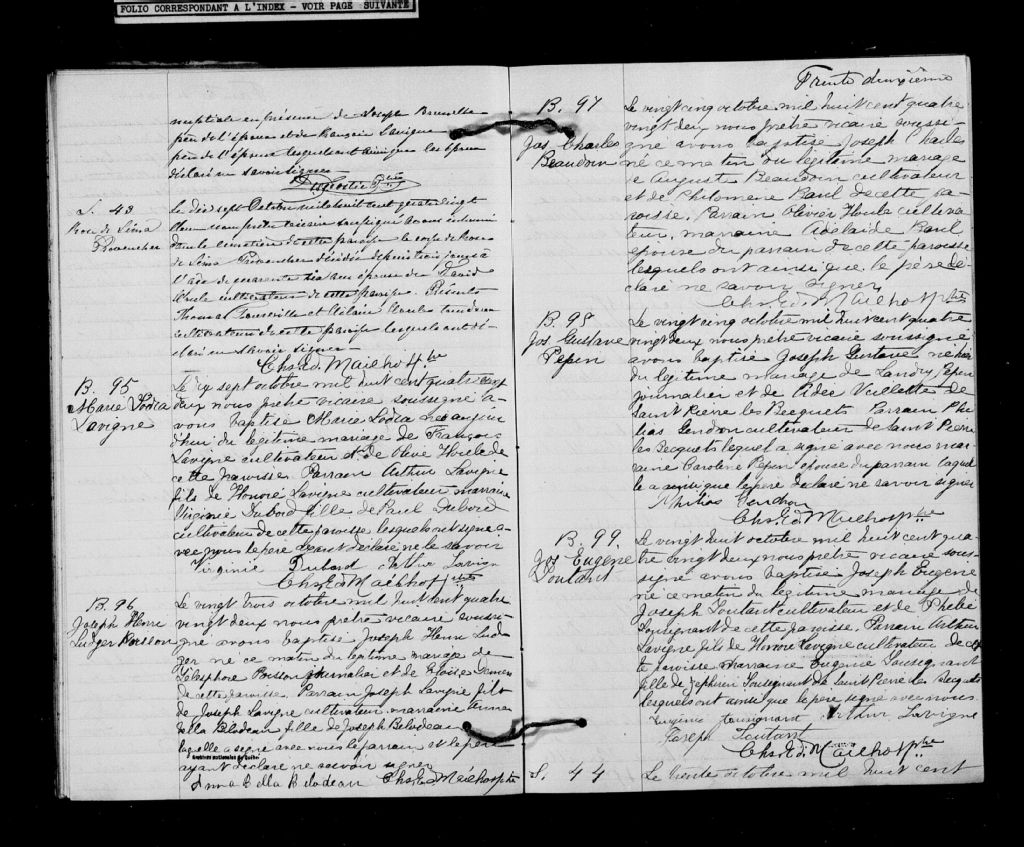 FOLIO CORRESPONDANT A L'INDEX - VOIR PAGE SUIVANTE
de Joseph
père de l'épouse et de François Lavigne
déclaré ne savoir signer
S. 43
Rose de Lima
Provencher
Le dix sept Octobre mil huit cent quatre vingt
deux nous prêtre vicaire soussigné avons inhumé
dans le cimetière de cette paroisse le corps de Rose
de Lima Provencher décédée
l'âge de quarante ans épouse de David
Houle cultivateur de cette paroisse. Présents
Thomas et Houle tous deux
cultivateurs de cette paroisse lesquels ont dé-
claré ne savoir signer
Chs. Ed. Mailhot Ptre
B. 95
Marie
Lavigne
Le dix sept octobre mil huit cent quatre vingt
deux nous prêtre vicaire soussigné a-
vons baptisé Marie née aujour
d'hui du légitime mariage de François
Lavigne cultivateur et de Olive Houle de
cette paroisse Parrain Arthur Lavigne
fils de Honoré Lavigne cultivateur marraine
Virginie Dubord fille de Paul Dubord
cultivateur de cette paroisse lesquels ont signé a-
vec nous le père ayant déclaré ne le savoir
Virginie Dubord Arthur Lavigne
Chs. Ed. Mailhot Ptre
B. 96
Joseph Henri
Ludger Poisson
Le vingt trois octobre mil huit cent quatre
vingt deux nous prêtre vicaire soussi-
gné avons baptisé Joseph Henri Lud
ger né ce matin du légitime mariage de
Télesphore Poisson journalier et de Héloïse
de cette paroisse Parrain Joseph Lavigne fils
de Joseph Lavigne cultivateur marraine Anna
Bella Bilodeau fille de Joseph Bilodeau
laquelle a signé avec nous le parrain et le père
ayant déclaré ne savoir signer
Archives nationales du Québec
Anna Bella Bilodeau Chs. Ed. Mailhot Ptre
Trente deuxième
B. 97
Jos. Charles
Beaudoin
Le vingt cinq octobre mil huit cent quatre
vingt deux nous prêtre vicaire soussi-
gné avons baptisé Joseph Charles
né ce matin du légitime mariage
de Auguste Beaudoin cultivateur
et de Philomène Paul de cette pa-
roisse, Parrain Olivier Houle cultiva-
teur, marraine Adelaide Paul
épouse du parrain de cette paroisse
lesquels ont ainsi que le père dé-
claré ne savoir signer
Chs. Ed. Mailhot Ptre
B. 98
Jos Gustave
Pepin
Le vingt cinq octobre mil huit cent quatre
vingt deux nous prêtre vicaire soussigné
avons baptisé Joseph Gustave né hier
du légitime mariage de Landry Pepin
journalier et de Adée de
Saint Pierre les Becquets Parrain Phi
lias Gendron cultivateur de Saint Pierre
les Becquets lequel a signé avec nous mar
raine Caroline Pepin épouse du parrain laquel
le a ainsi que le père déclaré ne savoir signer
Philias Gendron
Chs. Ed. Mailhot Ptre
B. 99.
Jos Eugène
Toutant
Le vingt huit octobre mil huit cent qua
tre vingt deux nous prêtre vicaire sous-
signé avons baptisé Joseph Eugène
né ce matin du légitime mariage de
Joseph Toutant cultivateur et de Phebé
Tousignant de cette paroisse. Parrain Arthur
Lavigne fils de Honoré Lavigne cultivateur de cet
te paroisse Marraine Eugénie Tousignant
fille de Zéphirin Tousignant de Saint Pierre les Becquets
lesquels ont ainsi que le père signé avec nous
Eugénie Tousignant Arthur Lavigne
Joseph Toutant
Chs. Ed. Mailhot Ptre
S. 44
Le trente octobre mil huit cent